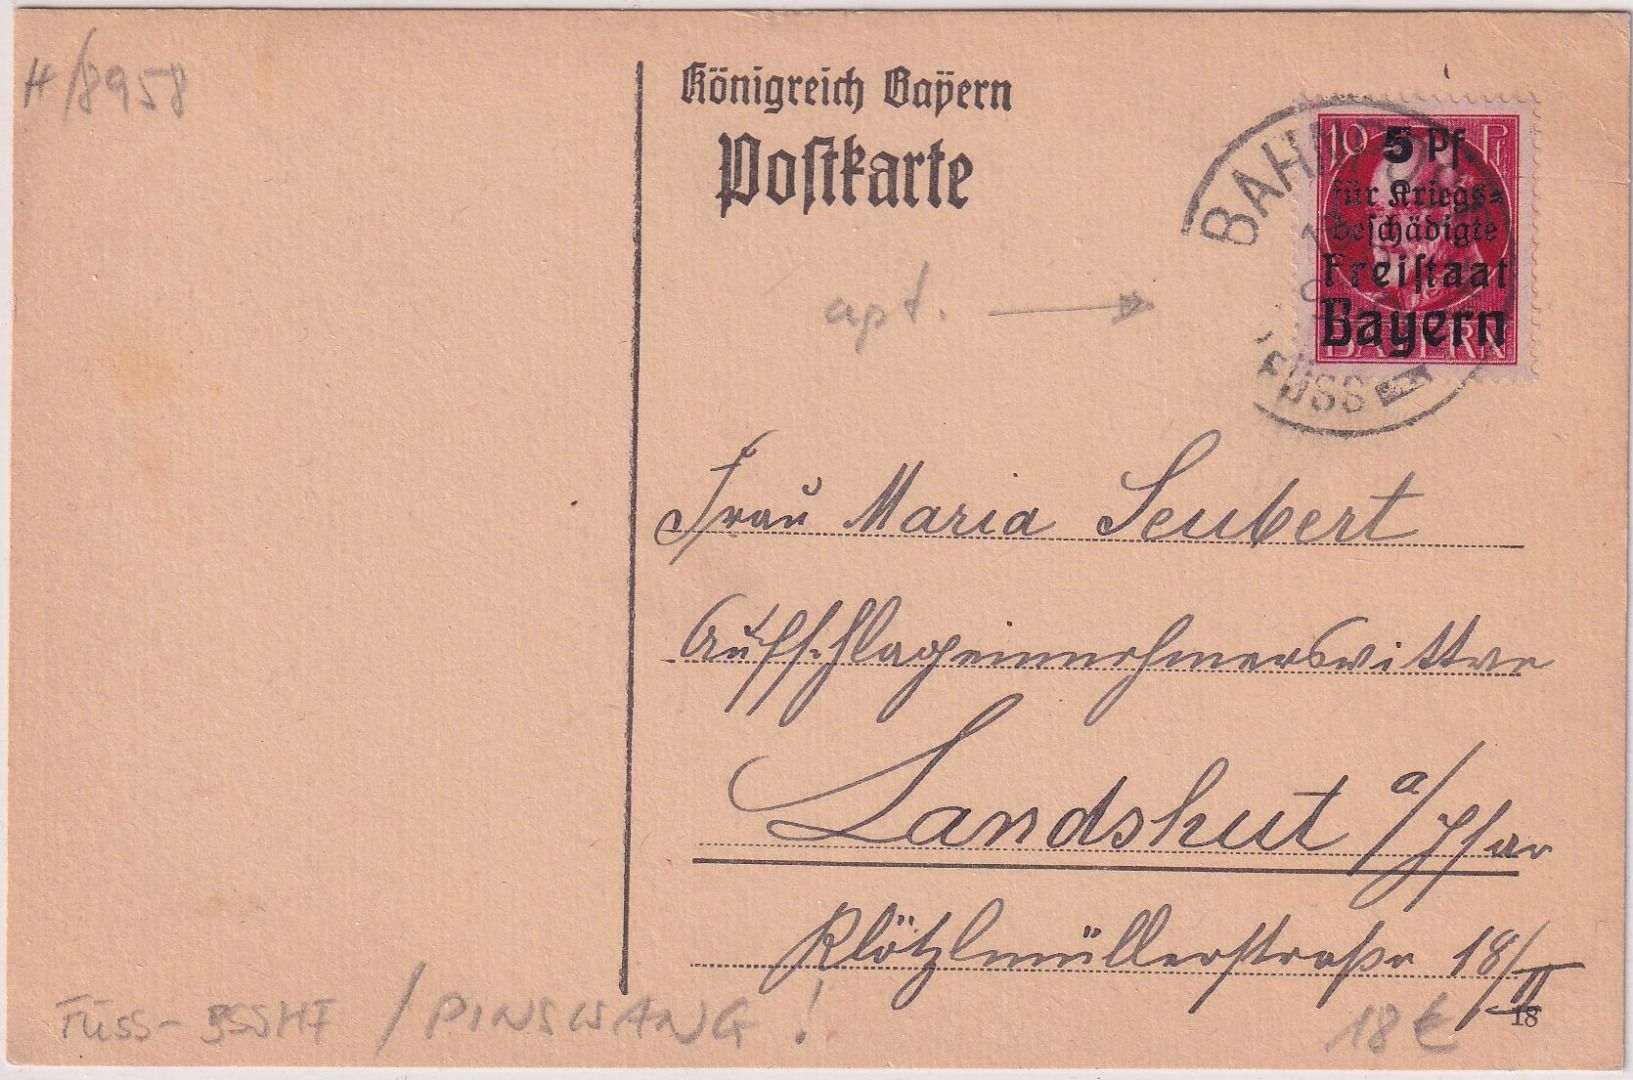 H/8958
Königreich Bayern
Postkarte
10 Pf
5 Pf.
für Kriegs=
beschädigte
Freistaat
Bayern
BAYERN
BAHNPOST
FÜSS
apt.
Frau Maria Seubert
Aufschlageinnehmerswittwe
Landshut a/Isar
Klötzlmüllerstraße 18/II
18
FÜSS- / PINSWANG !
18 €